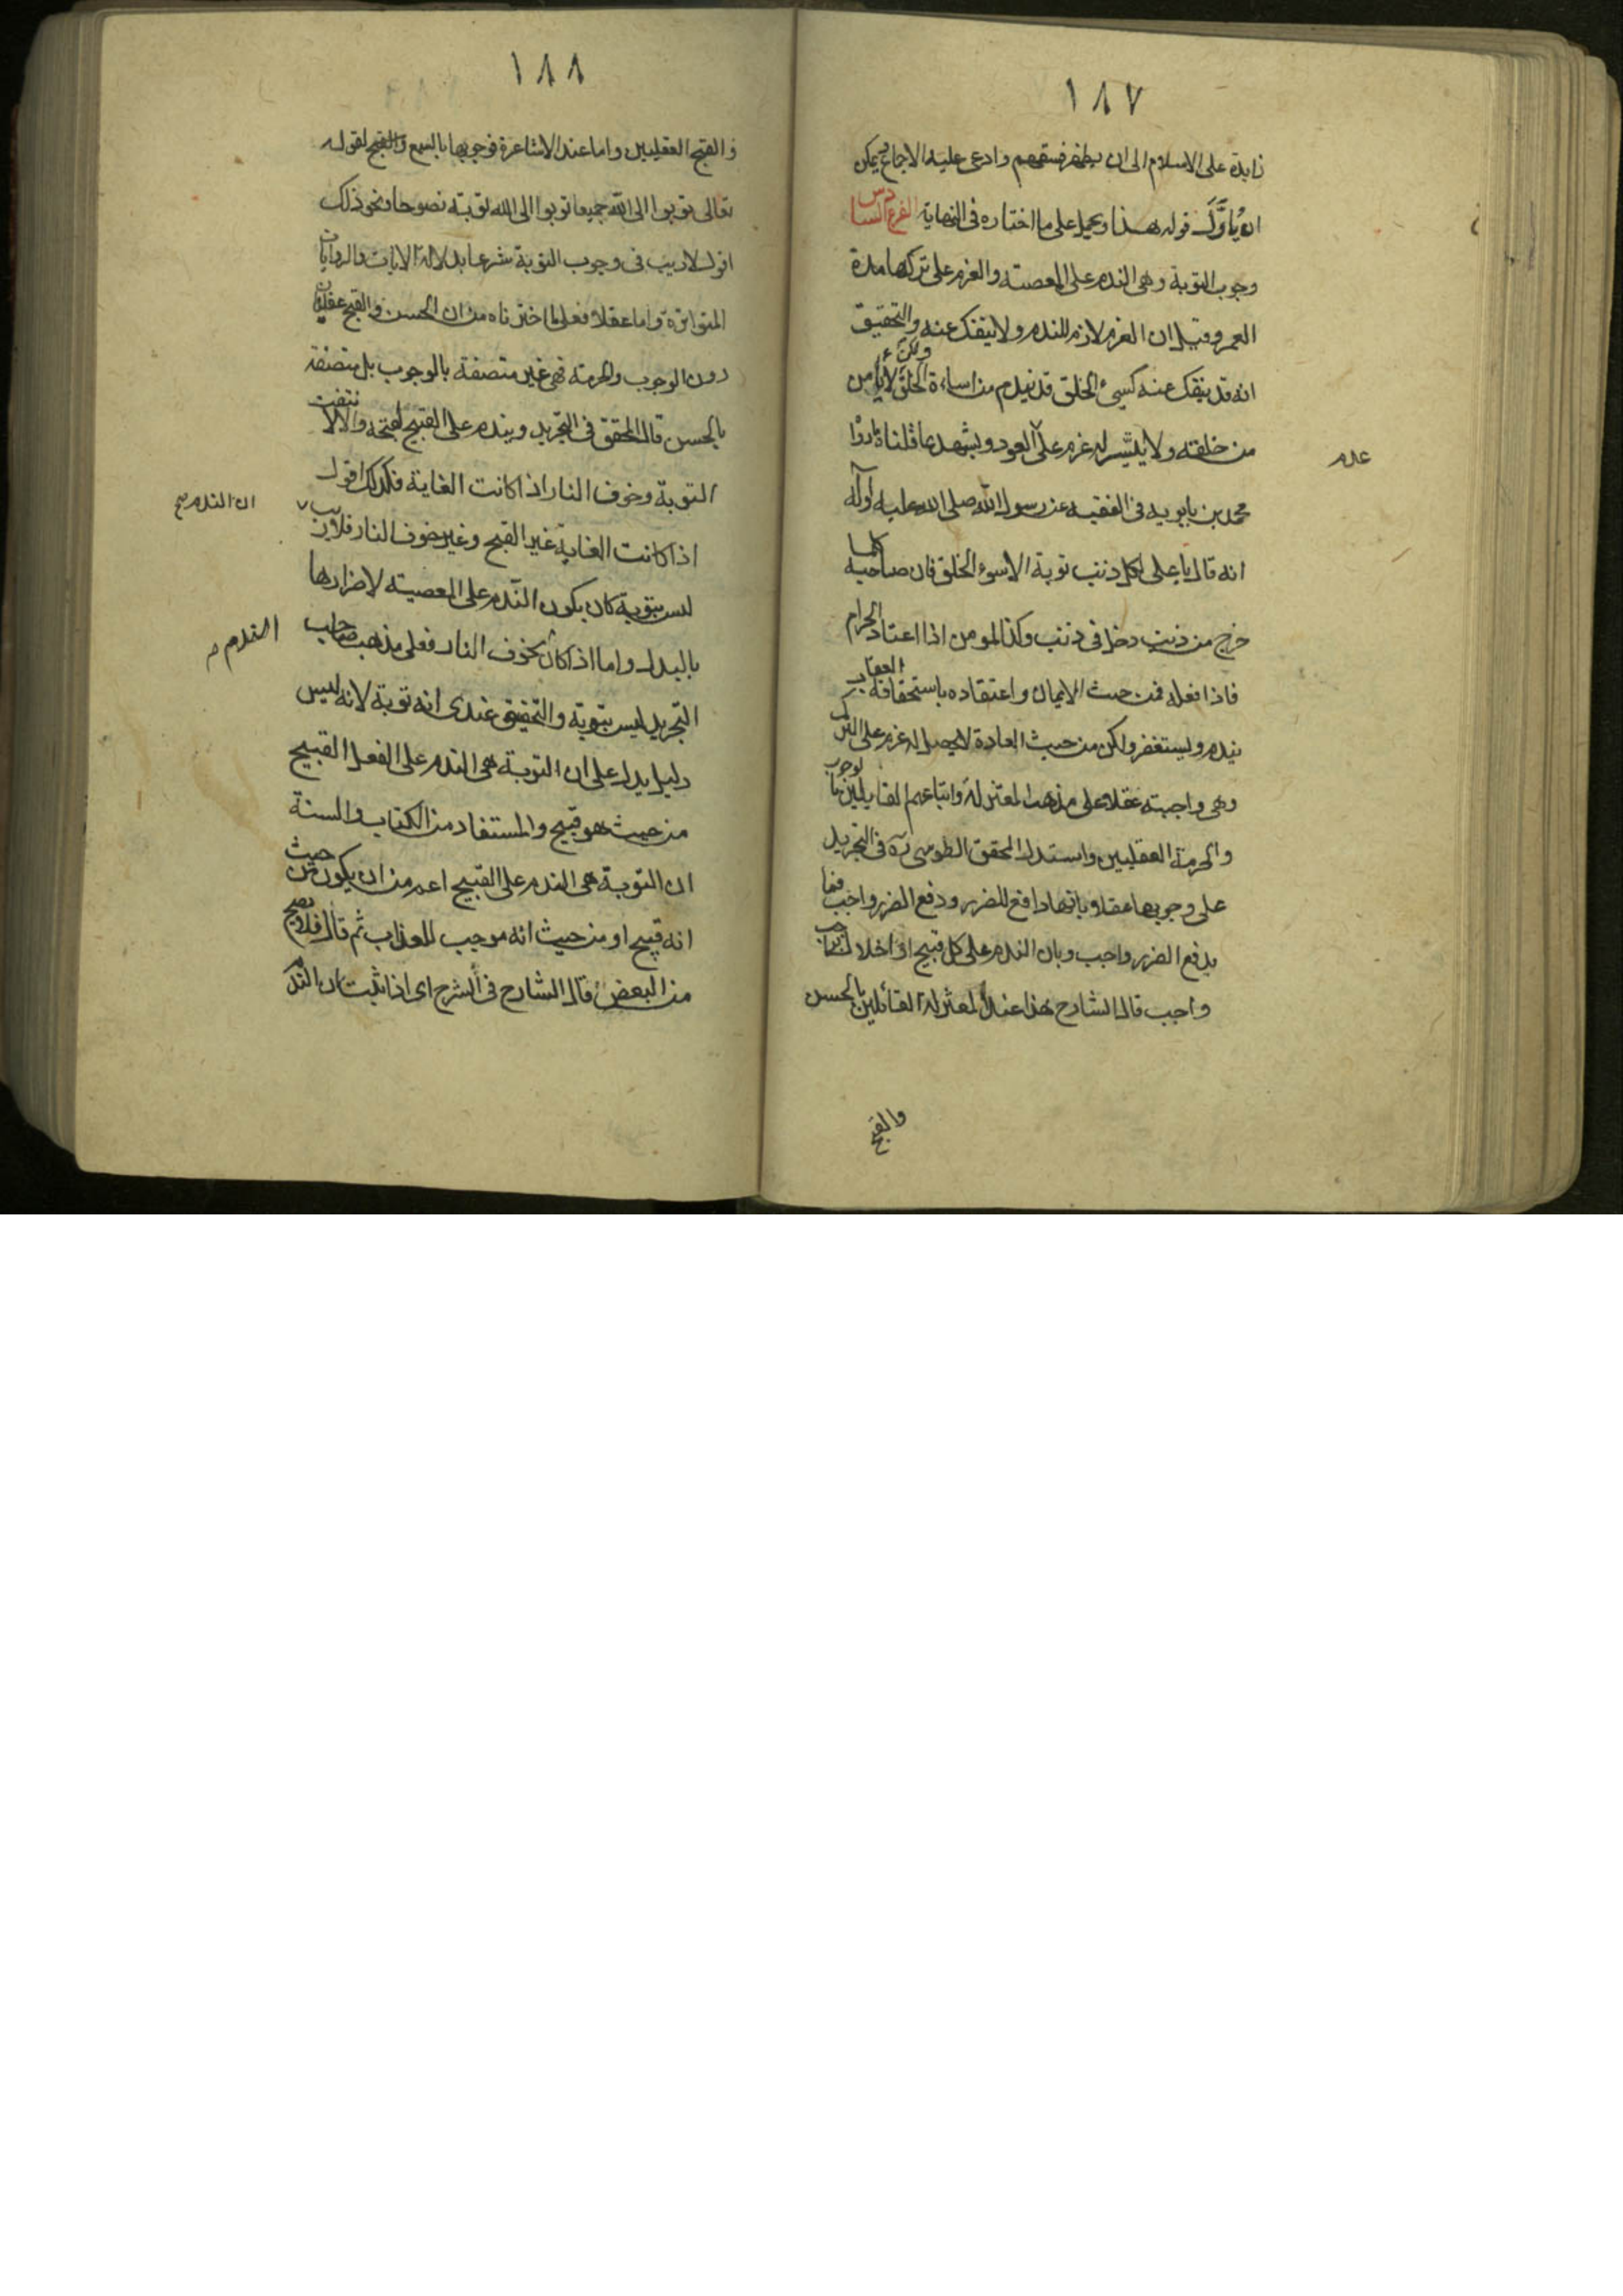 ١٨٧
زايدة على الاسلام الى ان يظهر فسقهم وادعى عليه الاجماع ويمكن
ان يُأوَّل قوله هذا ويحمل على ما اختاره فى النهاية الفرع السادس
وجوب التوبة وهى الندم على المعصية والعزم على تركها مدة
العمر وقيل ان العزم لازم للندم ولا ينفك عنه والتحقيق
انه قد ينفك عنه كسيئ الخلق قد يندم من اساءة الخلق ولكن لا يأمن
من خلقه ولا يتيسر له عزم على العود ويشهد بما قلناه ما روا
عدم
محمد بن بابويه فى الفقيه عن رسول الله صلى الله عليه وآله
انه قال يا على لكل ذنب توبة الا سوء الخلق فان صاحبه كلما
خرج من ذنب دخل فى ذنب وكذا المومن اذا اعتاد الحرام
فاذا فعله فمن حيث الايمان واعتقاده باستحقاقه العقاب
يندم ويستغفر ولكن من حيث العادة لا يحصل له عزم على الترك
وهى واجبته عقلا على مذهب المعتزلة واتباعهم القايلين بالوجوب
والحرمة العقليين واستدل المحقق الطوسى ره فى التجريد
على وجوبها عقلا وبانها دافع للضرر ودفع الضرر واجب فما
يدفع الضرر واجب وبان الندم على كل قبيح او اخلال بواجب
واجب قال الشارح هذا عند المعتزلة القائلين بالحسن
والقبح
١٨٨
والقبح العقليين واما عند الاشاعرة فوجوبها بالسمع والقبح لقوله
تعالى توبوا الى الله جميعا توبوا الى الله توبة نصوحا ونحو ذلك
اقول لا ريب فى وجوب التوبة شرعا بدلالة الايات والروايات
المتواترة واما عقلا فعلى ما اخترناه من ان الحسن والقبح عقليان
دون الوجوب والحرمة فهى غير متصفة بالوجوب بل متصفة
بالحسن قال المحقق فى التجريد ويندم على القبيح لقبحه والا لانتفت
التوبة وخوف النار اذا كانت الغاية فكذلك اقول
اذا كانت الغاية غير القبح وغير خوف النار فلا ريب
ان الندم صح
ليس بتوبة كان يكون الندم على المعصية لاضرارها
بالبدل واما اذا كان بخوف النار فعلى مذهب صاحب
الندم م
التجريد ليس بتوبة والتحقيق عندى انه توبة لانه ليس
دليل يدل على ان التوبة هى الندم على الفعل القبيح
من حيث هو قبيح والمستفاد من الكتاب والسنة
ان التوبة هى الندم على القبيح اعم من ان يكون من حيث
انه قبيح او من حيث انه موجب للعذاب ثم قال فلا يصح
من البعض قال الشارح فى الشرح اى اذا ثبت ان الندم